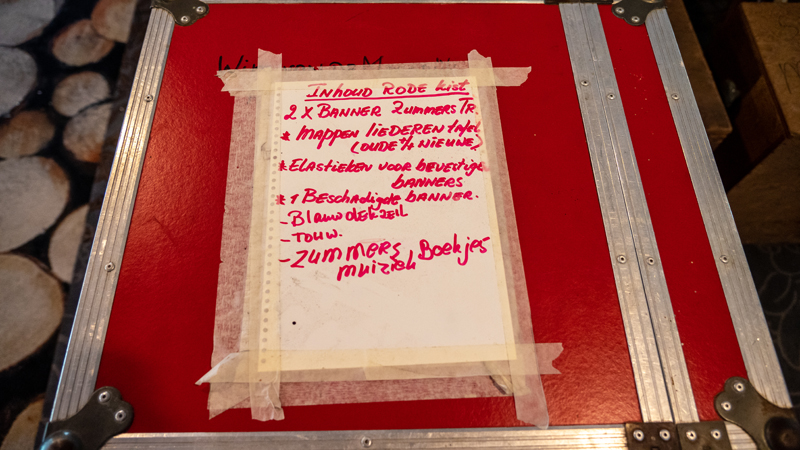 INHOUD RODE KIST
2 X BANNER ZUMMERSTR.
* MAPPEN LIEDEREN tafel
(OUDE + NIEUWE)
* ELASTIEKEN VOOR bevestige
BANNERS
* 1 Beschadigde banner.
- Blauw dekzeil
- Touw.
- ZUMMERS Boekjes
muziek